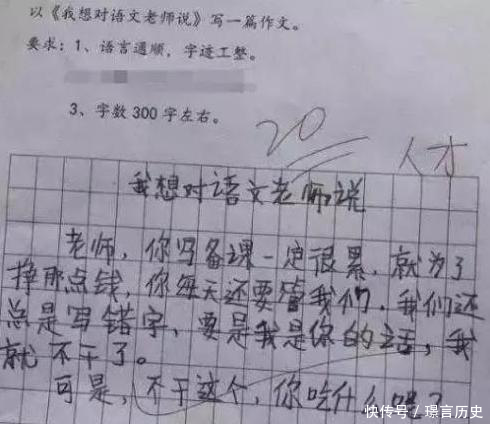 以《我想对语文老师说》写一篇作文。
要求：1、语言通顺，字迹工整。
3、字数300字左右。
20
人才
我想对语文老师说
老师，你写备课一定很累，就为了
挣那点钱，你每天还要管我们，我们还
总是写错字，要是我是你的话，我
就不干了。
可是，不干这个，你吃什么呢？
快传号/璟言历史